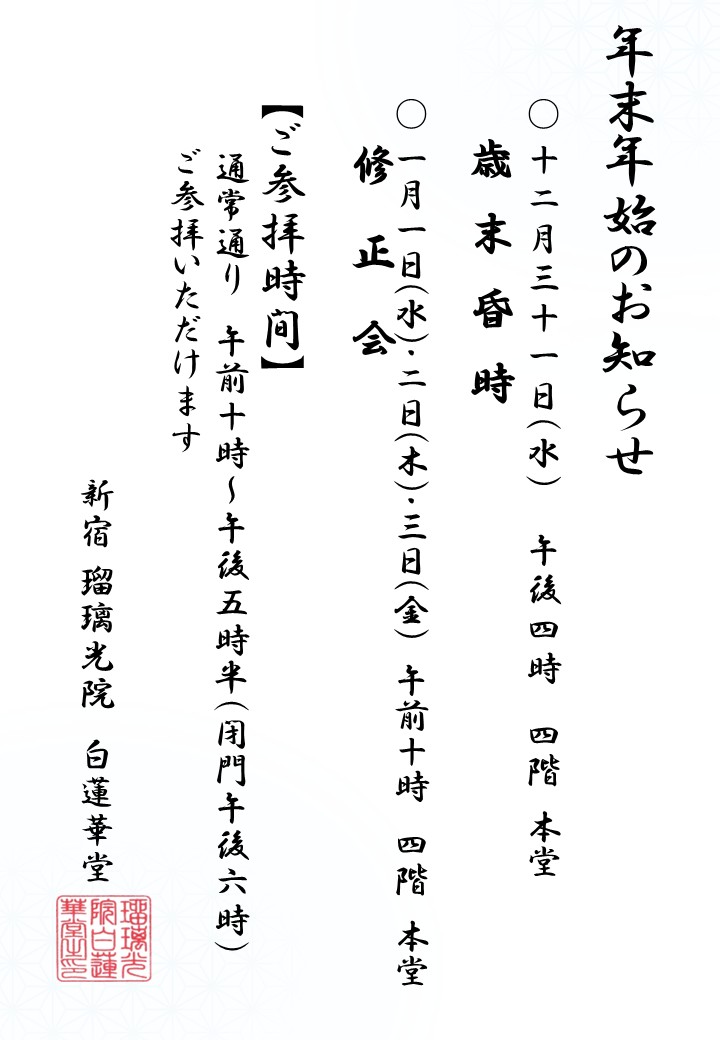 年末年始のお知らせ
〇 十二月三十一日(水) 午後四時 四階 本堂
歳末昏時
〇 一月一日(水)・二日(木)・三日(金) 午前十時 四階 本堂
修正会
【ご参拝時間】
通常通り 午前十時~午後五時半(閉門午後六時)
ご参拝いただけます
新宿 瑠璃光院 白蓮華堂
瑠璃光
院白蓮
華堂之印